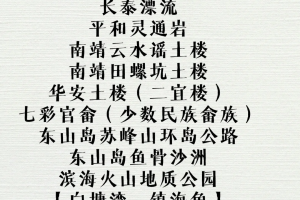 长泰漂流
平和灵通岩
南靖云水谣土楼
南靖田螺坑土楼
华安土楼（二宜楼）
七彩官畲（少数民族畲族）
东山岛苏峰山环岛公路
东山岛鱼骨沙洲
滨海火山地质公园
【白塘湾、镇海角】